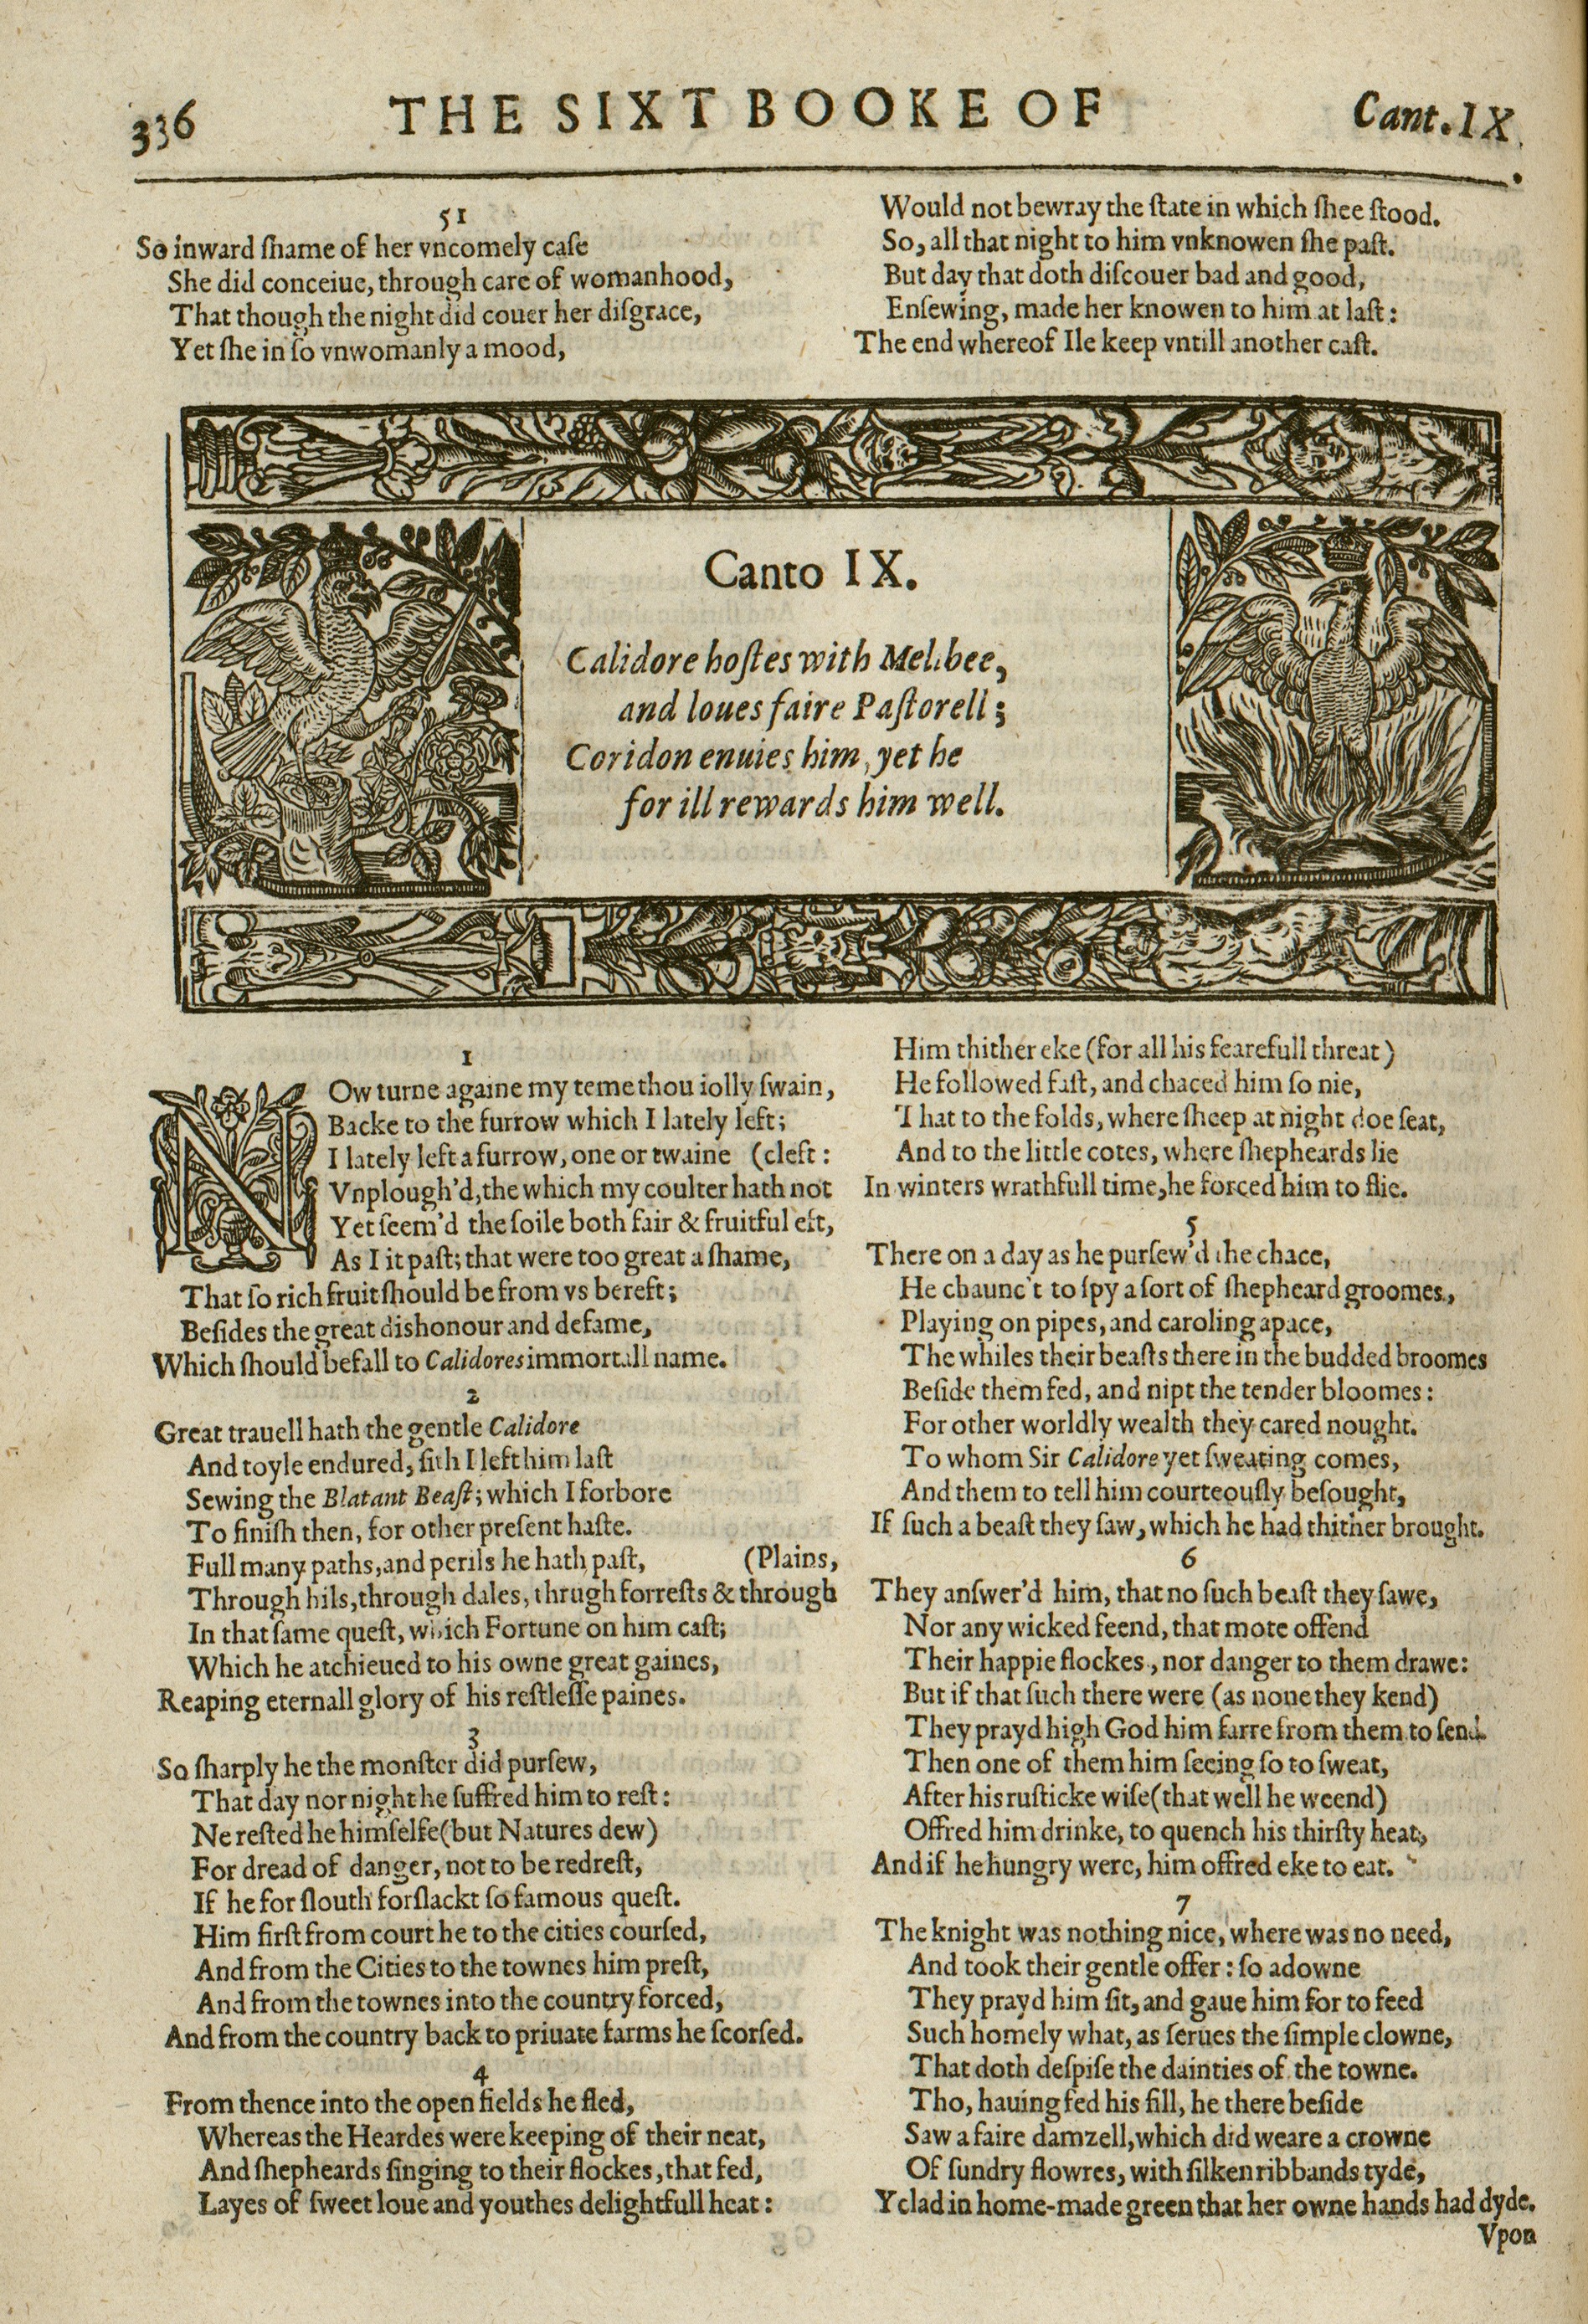 336
THE SIXT BOOKE OF
Cant. IX.
51
So inward ſhame of her vncomely caſe
She did conceiue, through care of womanhood,
That though the night did couer her diſgrace,
Yet ſhe in ſo vnwomanly a mood,
Would not bewray the ſtate in which ſhee ſtood.
So, all that night to him vnknowen ſhe paſt.
But day that doth diſcouer bad and good,
Enſewing, made her knowen to him at laſt:
The end whereof Ile keep vntill another caſt.
Canto IX.
Calidore hoſtes with Melibee,
and loues faire Paſtorell;
Coridon enuies him, yet he
for ill rewards him well.
1
NOw turne againe my teme thou iolly ſwain,
Backe to the furrow which I lately left;
I lately left a furrow, one or twaine (cleft:
Vnplough'd, the which my coulter hath not
Yet ſeem'd the ſoile both fair & fruitful eft,
As I it paſt; that were too great a ſhame,
That ſo rich fruit ſhould be from vs bereft;
Beſides the great diſhonour and defame,
Which ſhould befall to Calidores immortall name.
2
Great trauell hath the gentle Calidore
And toyle endured, ſith I left him laſt
Sewing the Blatant Beaſt; which I forbore
To finiſh then, for other preſent haſte.
Full many paths, and perils he hath paſt, (Plains,
Through hils, through dales, thrugh forreſts & through
In that ſame queſt, which Fortune on him caſt;
Which he atchieued to his owne great gaines,
Reaping eternall glory of his reſtleſſe paines.
3
So ſharply he the monſter did purſew,
That day nor night he ſuffred him to reſt:
Ne reſted he himſelfe (but Natures dew)
For dread of danger, not to be redreſt,
If he for ſlouth forſlackt ſo famous queſt.
Him firſt from court he to the cities courſed,
And from the Cities to the townes him preſt,
And from the townes into the country forced,
And from the country back to priuate farms he ſcorſed.
4
From thence into the open fields he fled,
Whereas the Heardes were keeping of their neat,
And ſhepheards ſinging to their flockes, that fed,
Layes of ſweet loue and youthes delightfull heat:
Him thither eke (for all his fearefull threat)
He followed faſt, and chaced him ſo nie,
That to the folds, where ſheep at night doe ſeat,
And to the little cotes, where ſhepheards lie
In winters wrathfull time, he forced him to flie.
5
There on a day as he purſew'd the chace,
He chaunc't to ſpy a ſort of ſhepheard groomes,
Playing on pipes, and caroling apace,
The whiles their beaſts there in the budded broomes
Beſide them fed, and nipt the tender bloomes:
For other worldly wealth they cared nought.
To whom Sir Calidore yet ſweating comes,
And them to tell him courteouſly beſought,
If ſuch a beaſt they ſaw, which he had thither brought.
6
They anſwer'd him, that no ſuch beaſt they ſawe,
Nor any wicked feend, that mote offend
Their happie flockes, nor danger to them drawe:
But if that ſuch there were (as none they kend)
They prayd high God him farre from them to ſend.
Then one of them him ſeeing ſo to ſweat,
After his ruſticke wiſe (that well he weend)
Offred him drinke, to quench his thirſty heat,
And if he hungry were, him offred eke to eat.
7
The knight was nothing nice, where was no need,
And took their gentle offer: ſo adowne
They prayd him ſit, and gaue him for to feed
Such homely what, as ſerues the ſimple clowne,
That doth deſpiſe the dainties of the towne.
Tho, hauing fed his fill, he there beſide
Saw a faire damzell, which did weare a crowne
Of ſundry flowres, with ſilken ribbands tyde,
Yclad in home-made green that her owne hands had dyde.
Vpon